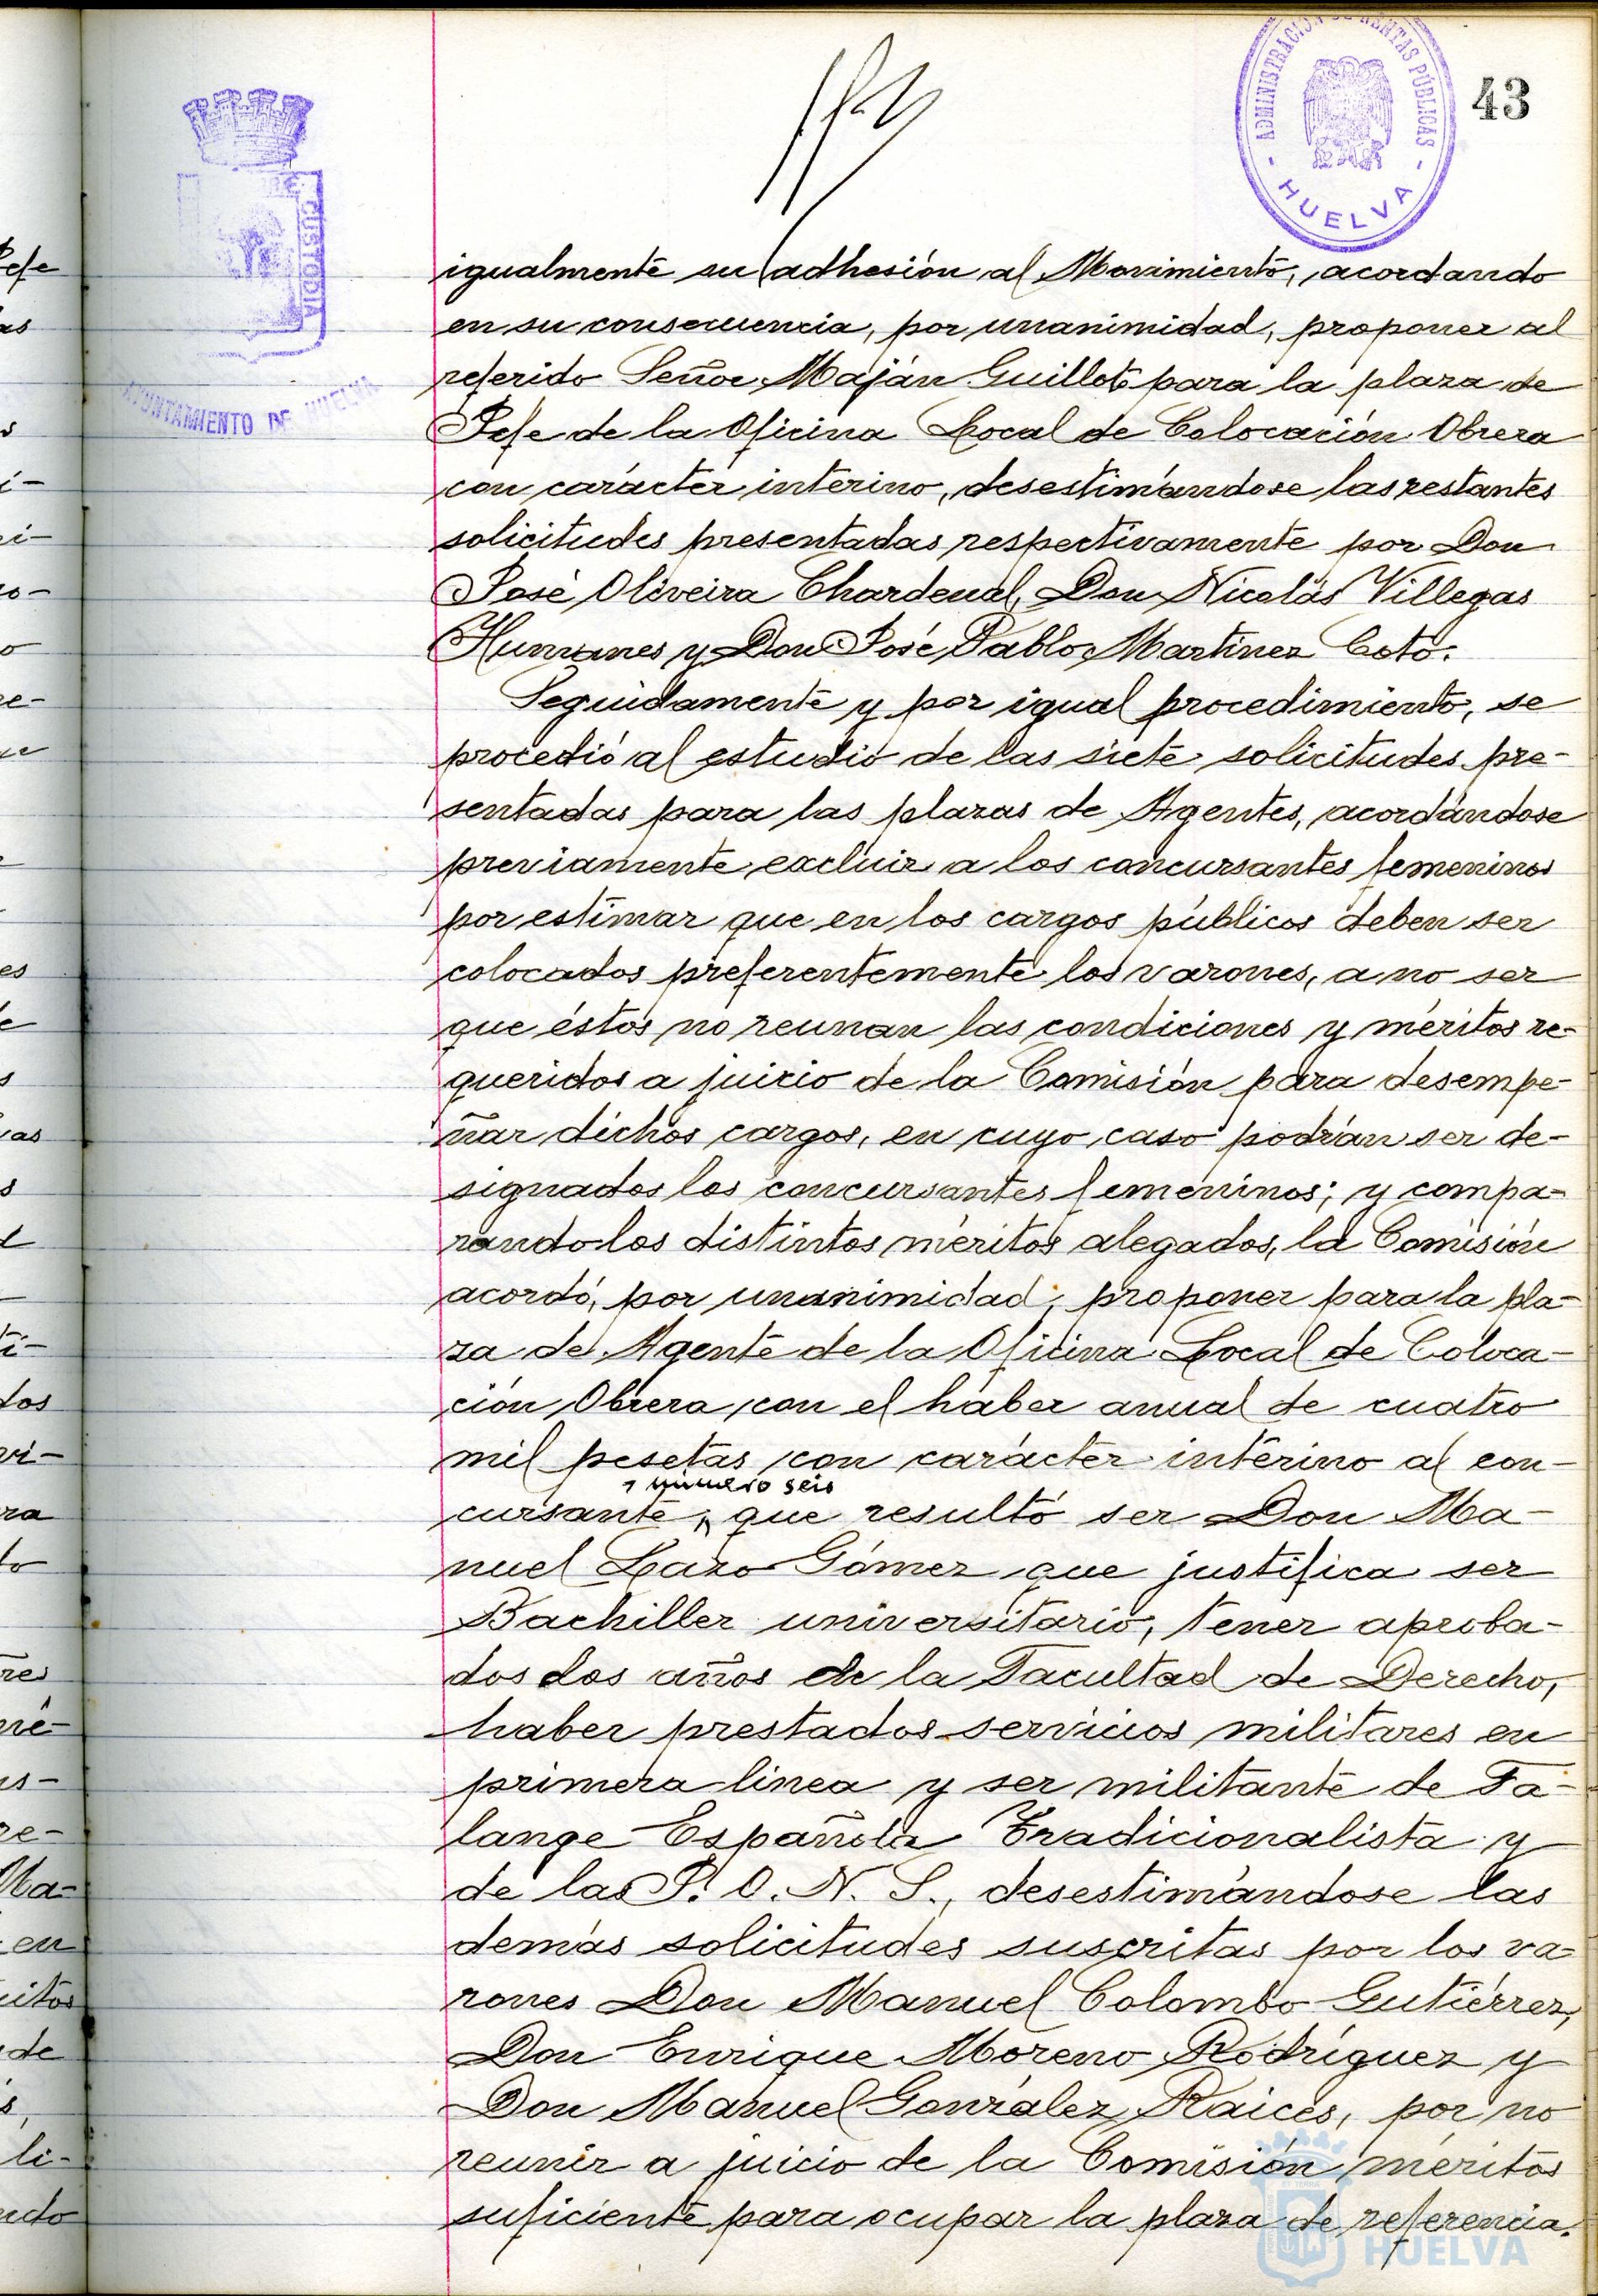 ADMINISTRACIÓN DE RENTAS PÚBLICAS
- HUELVA -
43
CUSTODIA
AYUNTAMIENTO DE HUELVA
igualmente su adhesión al Movimiento, acordando
en su consecuencia, por unanimidad, proponer al
referido Señor Maján Guillot para la plaza de
Jefe de la Oficina Local de Colocación Obrera
con carácter interino, desestimándose las restantes
solicitudes presentadas respectivamente por Don
José Oliveira Chardenal, Don Nicolás Villegas
Humanes y Don José Pablo Martinez Coto.
Seguidamente y por igual procedimiento, se
procedió al estudio de las siete solicitudes pre-
sentadas para las plazas de Agentes, acordándose
previamente excluir a los concursantes femeninos
por estimar que en los cargos públicos deben ser
colocados preferentemente los varones, a no ser
que éstos no reunan las condiciones y méritos re-
queridos a juicio de la Comisión para desempe-
ñar dichos cargos, en cuyo caso podrían ser de-
signados los concursantes femeninos; y compa-
rando los distintos méritos alegados, la Comisión
acordó, por unanimidad, proponer para la pla-
za de Agente de la Oficina Local de Coloca-
ción Obrera con el haber anual de cuatro
mil pesetas con carácter interino al con-
número seis
cursante, que resultó ser Don Ma-
nuel Lazo Gómez que justifica ser
Bachiller universitario, tener aproba-
dos dos años de la Facultad de Derecho,
haber prestados servicios militares en
primera linea y ser militante de Fa-
lange Española Tradicionalista y
de las J. O. N. S., desestimándose las
demás solicitudes suscritas por los va-
rones Don Manuel Colombo Gutiérrez,
Don Enrique Moreno Rodríguez y
Don Manuel González Raices, por no
reunir a juicio de la Comisión méritos
suficiente para ocupar la plaza de referencia.
HUELVA